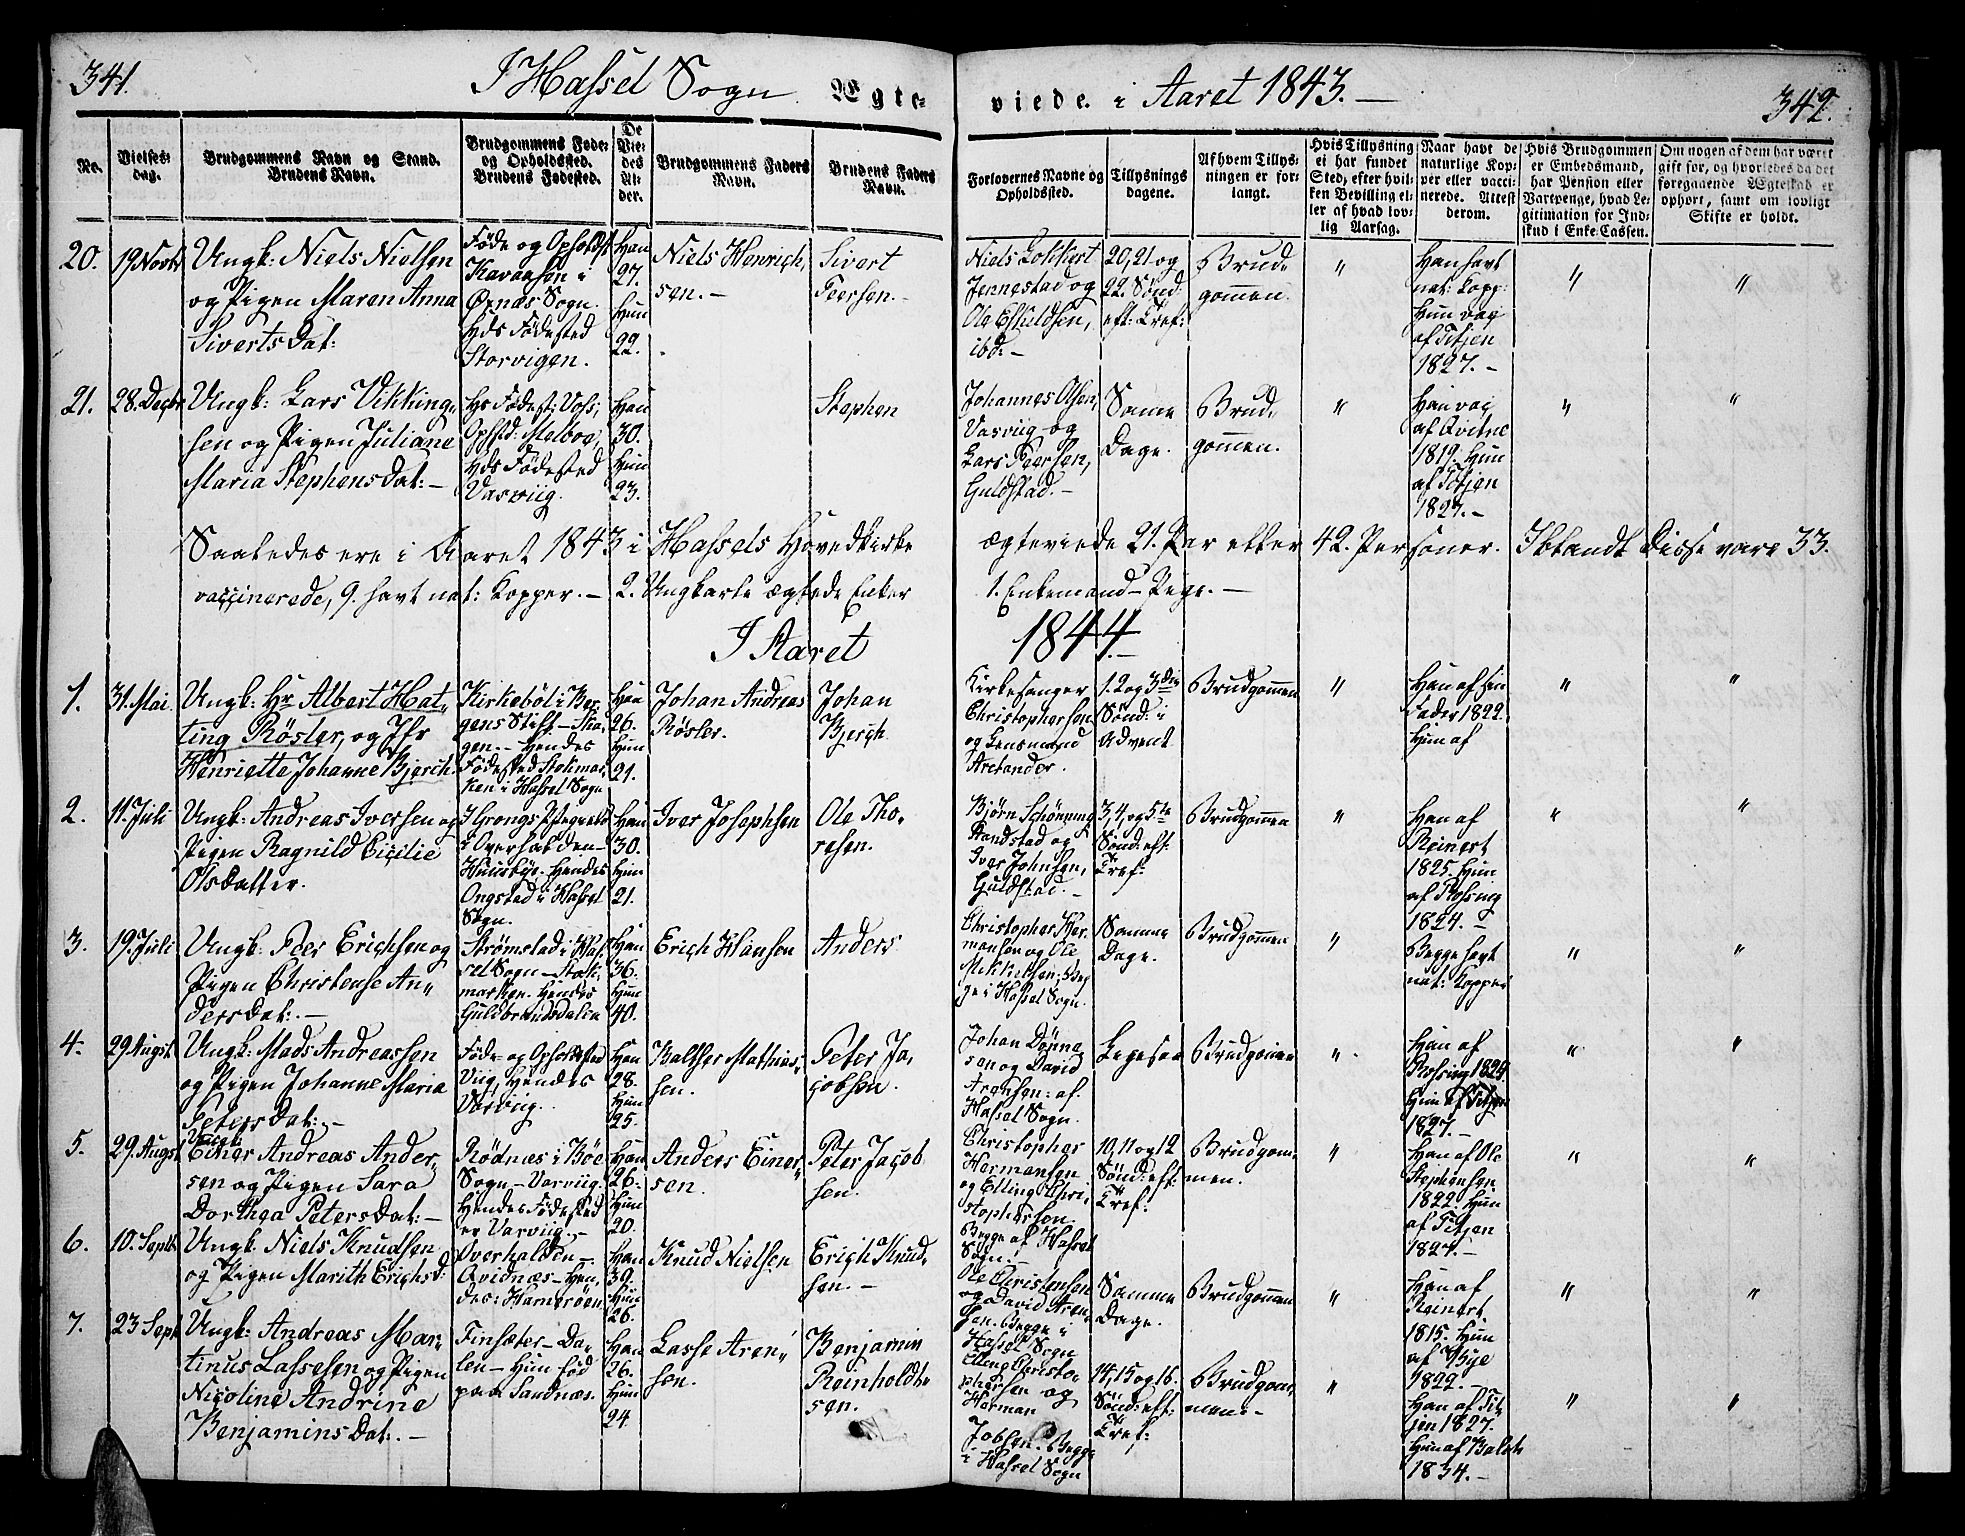 341.
I Hassel Sogn Egte-
viede i Aaret 1843.
342.
No.
Vielses-
dag.
Brudgommens Navn og Stand.
Brudens Navn.
Brudgommens Føde-
og Opholdssted.
Brudens Fødested.
De
Vie-
des
Al-
der.
Brudgommens Faders
Navn.
Brudens Faders
Navn.
Forlovernes Navne og
Opholdssted.
Tillysnings
dagene.
Af hvem Tillys-
ningen er for-
langt.
Hvis Tillysning
ei har fundet
Sted, efter hvil-
ken Bevilling el-
ler af hvad lov-
lig Aarsag.
Naar havt de
naturlige Kop-
per eller vacci-
nerede. Attest
derom.
Hvis Brudgommen
er Embedsmand,
har Pension eller
Vartpenge, hvad Le-
gitimation for Ind-
skud i Enke-Cassen.
Om nogen af dem har været
gift før, og hvorledes da det
foregaaende Ægteskab er
ophørt, samt om lovligt
Skifte er holdt.
20.
19 Novbr
Ungk: Niels Nielsen
og Pigen Maren Anna
SivertsDat:
Føde og Opholdst
Kavaasen i
Øxnæs Sogn.
Hds Fødested
Storvigen.
Han
27.
Hun
22.
Niels Henrich,
sen.-
Sivert
Peersen.-
Niels Lokkert
Jennestad og
Ole Eskildsen,
ibd.-
20, 21 og
22. Sønd:
eft: Tref:
Brud,
gommen.
"
Han havt
nat: Kopp:
Hun vac
af Titjen
1827.-
"
"
21.
28. Decbr
Ungk: Lars Vikking,,
sen og Pigen Juliane
Maria StephensDat:-
Hs Fødest: Voss,
Ophst: Melboe,
Hds Fødested
Vasviig.
Han
30.
Hun
23.
Stephen
Johannes Olsen,
Vasviig og
Lars Peersen,
Guldstad.-
Samme
Dage.
Brud,
gommen.
"
Han vac
af Qvitne
1819. Hun
af Titjen
1827.-
"
"
Saaledes ere i Aaret 1843 i Hassels Hovedkirke ægteviede 21. Par eller 42. Personer. Iblandt Disse vare 33.
vaccinerede, 9. havt nat: Kopper.- 2. Ungkarle ægtede Enker 1. Enkemand - Pige.-
I Aaret 1844.-
1.
31. Mai
Ungk: Hr Albert Hat,,
ting Røsler, og Jfr
Henriette Johanne Bjerch.
Kirkebøl i Ber,
gens Stift - Ska,
gen.- Hendes
Fødested Stokmar,
ken i Hassel Sogn
Han
26.
Hun
21.
Johan Andreas
Røsler.
Johan
Bjerch.
Kirkesanger
Christophersen
og Lensmand
Arctander.
1. 2 og 3die
Sønd: i
Advent
Brudgommen
"
Han af sin
Fader 1822.
Hun af
"
"
2.
11. Juli
Ungk: Andreas Iversen og
Pigen Ragnild Cicilie
OlsDatter.
I Grongs Præstegield
i Overhalden-
Hendes
Ongstad i Hassel
Sogn.
Han
30.
Hun
21.
Iver Josephsen
Ole Tho,
resen.
Bjørn Schønning
Sandstad og
Iver Johnsen,
Guldstad.-
3, 4, og 5te
Sønd: eft:
Tref:
Brudgommen
"
Han af
Reinert
1825. Hun
af Rossing
1824.-
"
"
3.
19. Juli
Ungk: Peer Erichsen og
Pigen Christense An,,
dersDat:.-
Strømstad i Has,
sel Sogn - Stok,
marken. Hendes
Guldbrandsdalen
Han
36.
Hun
40.
Erich Hansen
Anders
Christopher Her,
mansen og Ole
Mikkelsen: Beg
ge i Hassel Sogn.
Samme
Dage.
Brudgommen
"
Begge havt
nat: Kopper
"
"
4.
29 Augst
Ungk: Mads Andreassen
og Pigen Johanne Maria
PetersDat:-
Føde og Opholdssted
Viig, Hendes
Varviig.
Han
28.
Hun
25.
Balther Mathias,
sen.
Peter Ja,
cobsen.
Johan Dønne,
sen og David
Arensen: af
Hassel Sogn.
Ligesaa
Brudgommen
"
Han af
Rossing 1824.
Hun af Titjen
1827.-
"
"
5.
29. Augst
Ungk:
Einer Andreas Ander,,
sen og Pigen Sara
Dorthea PetersDat:-
Rødnæs i Bøe
Sogn - Varviig.
Hendes Fødested
er Varviig.-
Han
26.
Hun
20.
Anders Einer,
sen.
Peter Jacob
sen.
Christopher
Hermansen
og Elling Chri,
stophersen.
Begge af Hassel
Sogn.
10, 11 og 12
Sønd: eft:
Tref:
Brudgom,
men.
"
Han af Ole
Stephensen
1822. Hun
af Titjen
1827.-
"
"
6.
10. Septb
Ungk: Niels Knudsen
og Pigen Marith Erichsd:
Overhalden.-
Qvidnæs - Hen,
des: Hamerøen
Han
39.
Hun
26.
Knud Nielsen
Erich Knud,
sen.-
Ole Christensen
og David Aren,
sen. Begge i
Hassel Sogn
Samme
Dage.
Brudgommen
"
Han af
Reinert
1815. Hun
af Bye
1822.-
"
"
7.
23 Sept
Ungk: Andreas Mar,
tinus Lassesen og Pigen
Nicoline Andrine
BenjaminsDat:.-
Finsæter - Da,
len - Hun fød
paa Sandnæs.
Han
26.
Hun
24.
Lasse Aren,,
sen.
Benjamin
Reinholdt,
sen.
Elling Christo,
phersen og
Herman
Jobsen. Begge
i Hassel Sogn
14, 15 og 16.
Sønd: eft:
Tref:
Brudgom,
men.-
"
Han af Tit,
jen 1827.
Hun af Balch
1834.-
"
"